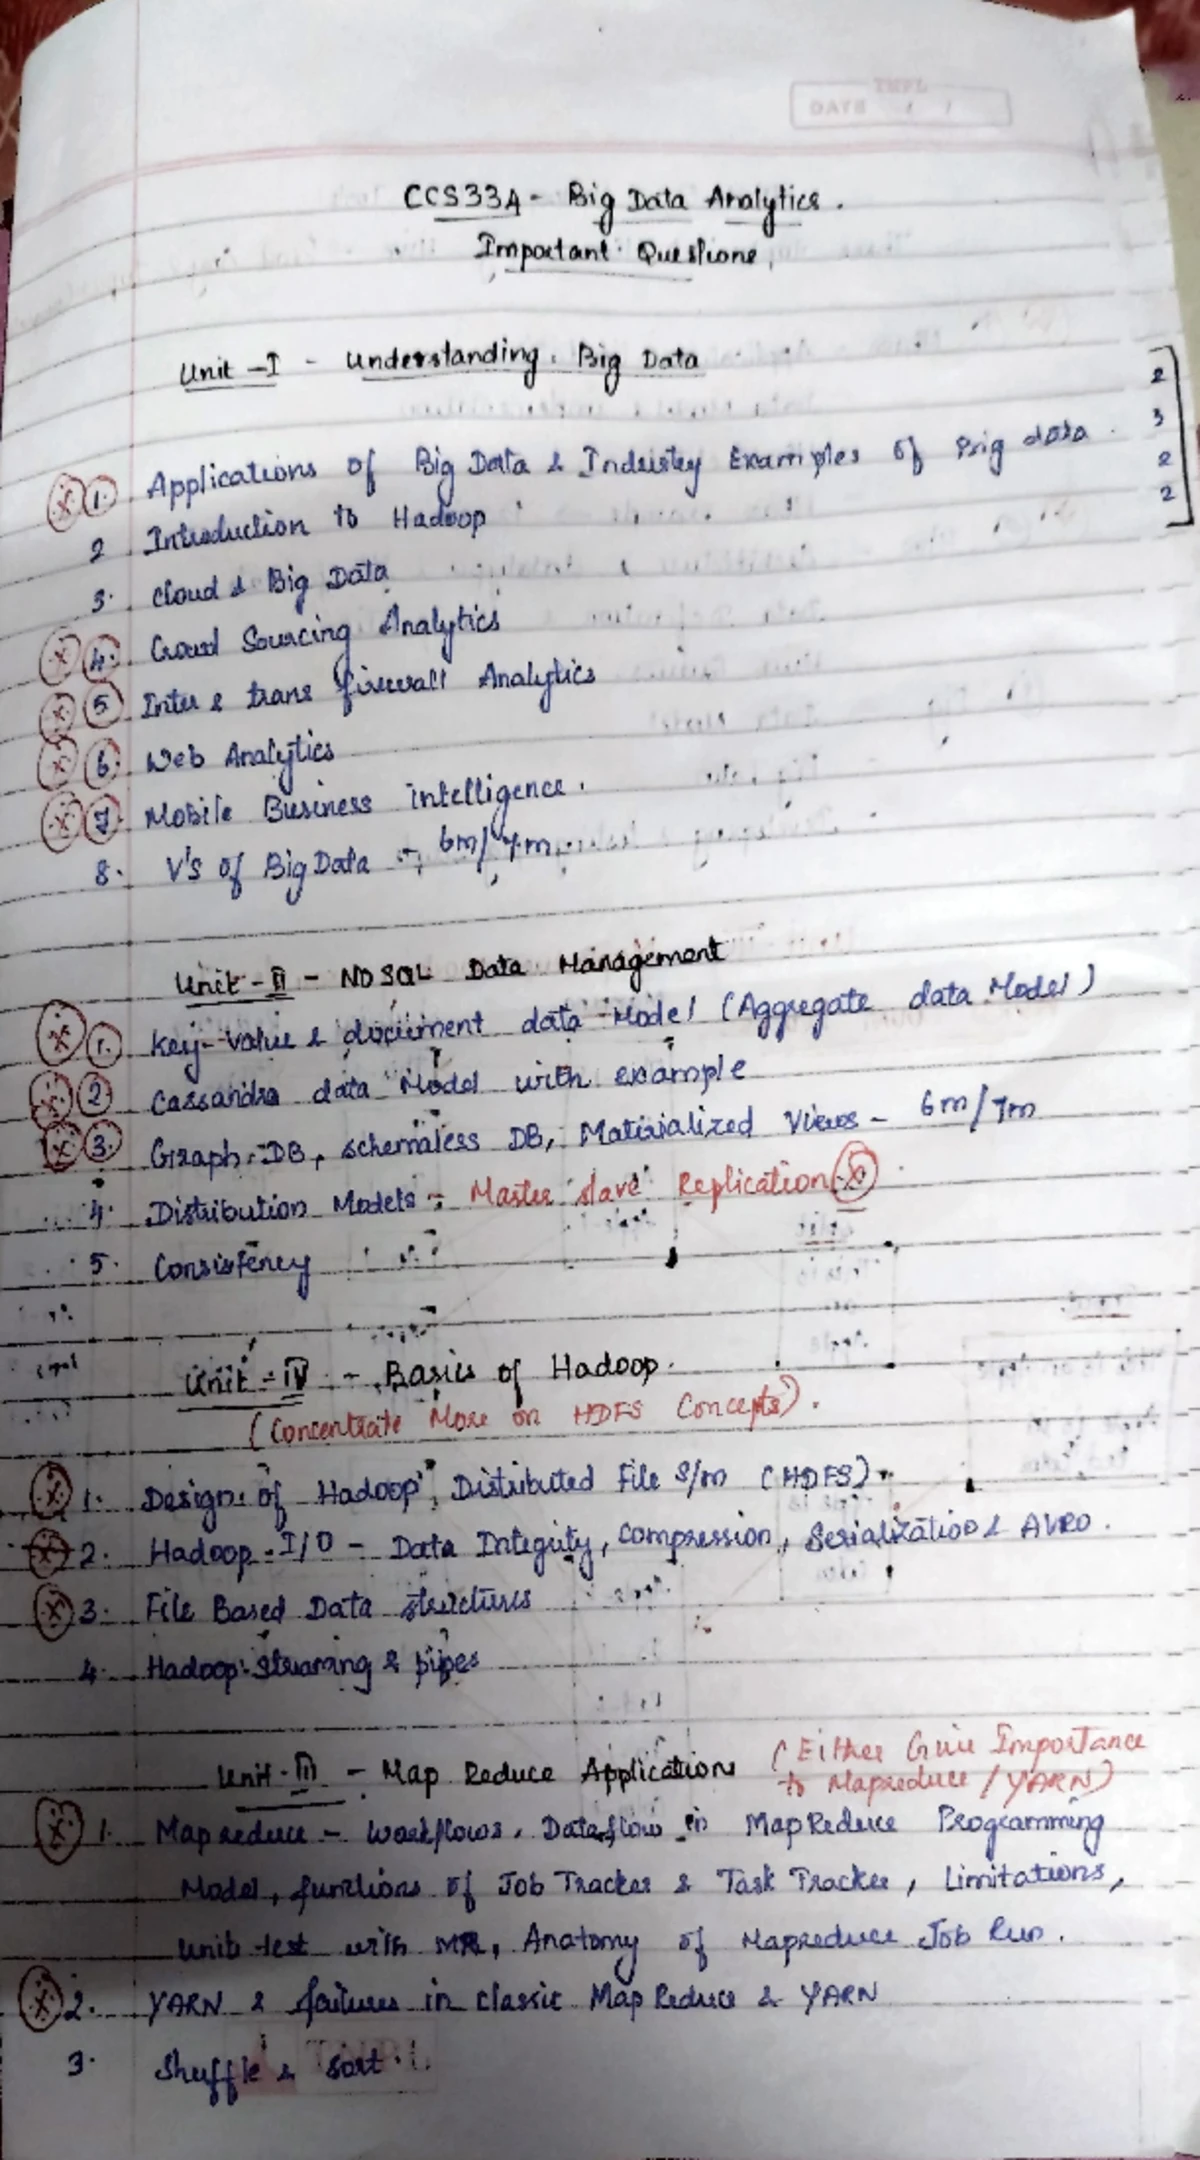 TNPL
DATE
CCS334 - Big Data Analytics.
Important Questions
Unit - I - Understanding Big Data
2
3
2
2
1. Applications of Big Data & Industry Examples of Big data.
2 Introduction to Hadoop
3. Cloud & Big Data
4. Crowd Sourcing Analytics
5 Inter & trans firewall Analytics
6. Web Analytics
7. Mobile Business intelligence.
8. V's of Big Data - 6m/7m
Unit - II - NOSQL Data Management
1. Key-Value & document data Model (Aggregate data Model)
2 Cassandra data Model with example
3. Graph DB, schemaless DB, Matirialized Views - 6m/7m
4. Distribution Models - Master slave Replication
5. Consistency
Unit - IV - Basics of Hadoop.
(Concentrate More on HDFS Concepts).
1. Design of Hadoop Distributed File S/m (HDFS)
2. Hadoop I/O - Data Integrity, compression, Serialization & AVRO.
3. File Based Data structures
4. Hadoop streaming & pipes
Unit - III - Map Reduce Applications (Either Give Importance
to Mapreduce / YARN)
1. Mapreduce - Workflows, Dataflow in MapReduce Programming
Model, functions of Job Tracker & Task Tracker, Limitations,
Unit test with MR, Anatomy of Mapreduce Job Run.
2. YARN & failures in classic Map Reduce & YARN
3. Shuffle & sort.